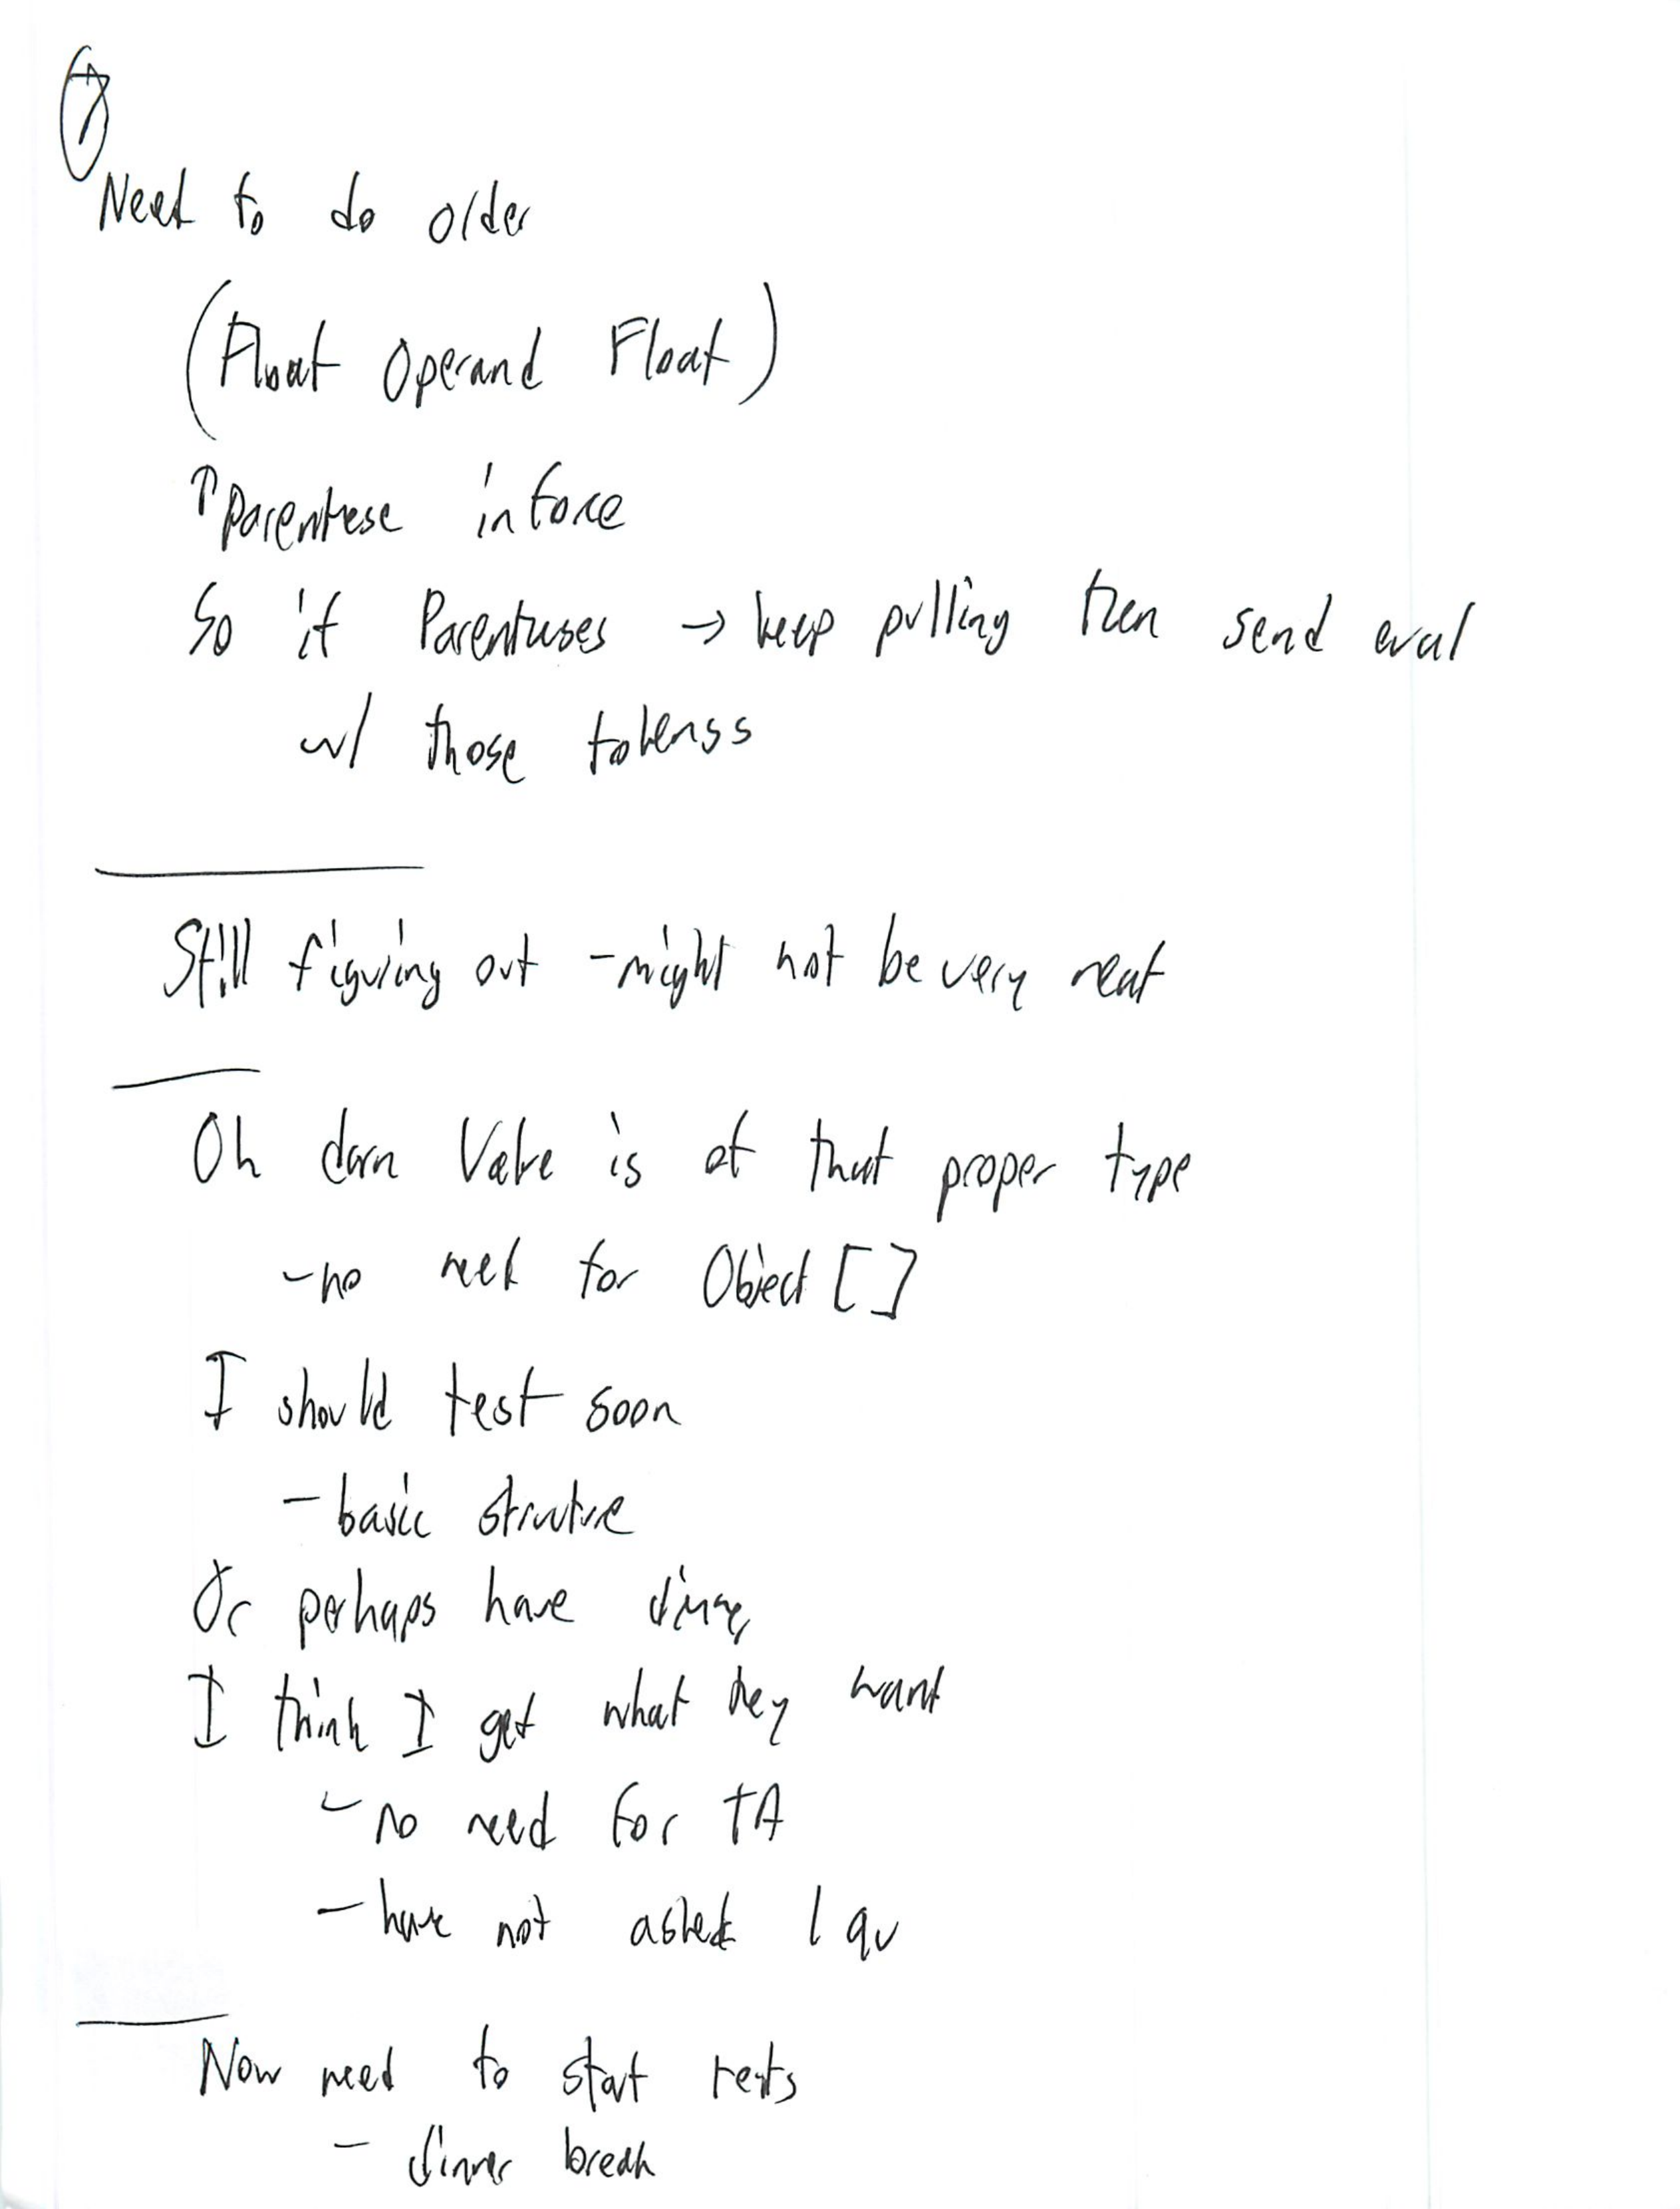 7
Need to do older
(Float Operand Float)
↑ parentese inforce
So if Parentuses → keep pulling then send eval
w/ those tokenss
Still figuring out - might not be very neat
Oh darn Value is of that proper type
- no need for Object []
I should test soon
- basic structure
Or perhaps have dinner
I think I get what they want
- no need for TA
- have not asked 1 qu
Now need to start tests
- dinner break